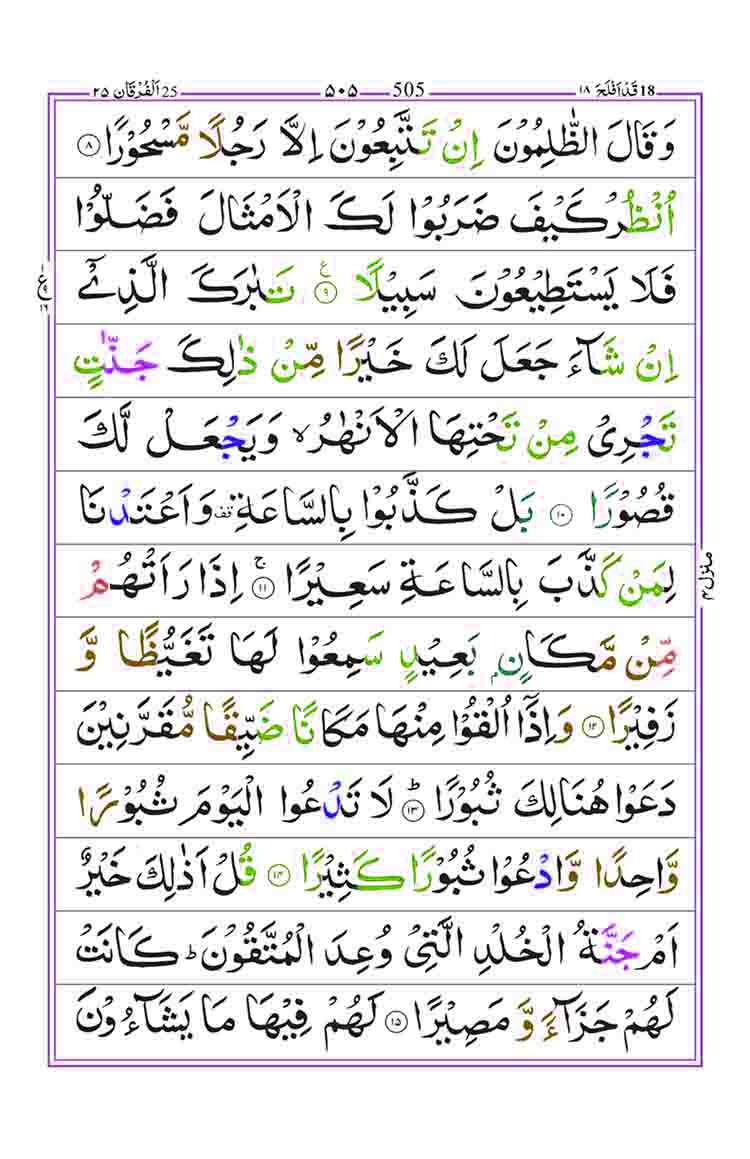 18 قَدْ اَفْلَحَ ١٨ 505 ٥٠٥ 25 اَلْفُرْقَان ٢٥
وَ قَالَ الظّٰلِمُوْنَ اِنْ تَتَّبِعُوْنَ اِلَّا رَجُلًا مَّسْحُوْرًا ٨
اُنْظُرْ كَيْفَ ضَرَبُوْا لَكَ الْاَمْثَالَ فَضَلُّوْا
فَلَا يَسْتَطِيْعُوْنَ سَبِيْلًا ٩ ع تَبٰرَكَ الَّذِيْۤ
ع ٩ ١٦
اِنْ شَآءَ جَعَلَ لَكَ خَيْرًا مِّنْ ذٰلِكَ جَنّٰتٍ
تَجْرِيْ مِنْ تَحْتِهَا الْاَنْهٰرُ ۙ وَيَجْعَلْ لَّكَ
قُصُوْرًا ١٠ بَلْ كَذَّبُوْا بِالسَّاعَةِ قف وَاَعْتَدْنَا
لِمَنْ كَذَّبَ بِالسَّاعَةِ سَعِيْرًا ١١ ج اِذَا رَاَتْهُمْ
منزل ٤
مِّنْ مَّكَانٍۭ بَعِيْدٍ سَمِعُوْا لَهَا تَغَيُّظًا وَّ
زَفِيْرًا ١٢ وَاِذَاۤ اُلْقُوْا مِنْهَا مَكَانًا ضَيِّقًا مُّقَرَّنِيْنَ
دَعَوْا هُنَالِكَ ثُبُوْرًا ١٣ ؕ لَا تَدْعُوا الْيَوْمَ ثُبُوْرًا
وَّاحِدًا وَّادْعُوْا ثُبُوْرًا كَثِيْرًا ١٤ قُلْ اَذٰلِكَ خَيْرٌ
اَمْ جَنَّةُ الْخُلْدِ الَّتِيْ وُعِدَ الْمُتَّقُوْنَ ؕ كَانَتْ
لَهُمْ جَزَآءً وَّ مَصِيْرًا ١٥ لَهُمْ فِيْهَا مَا يَشَآءُوْنَ